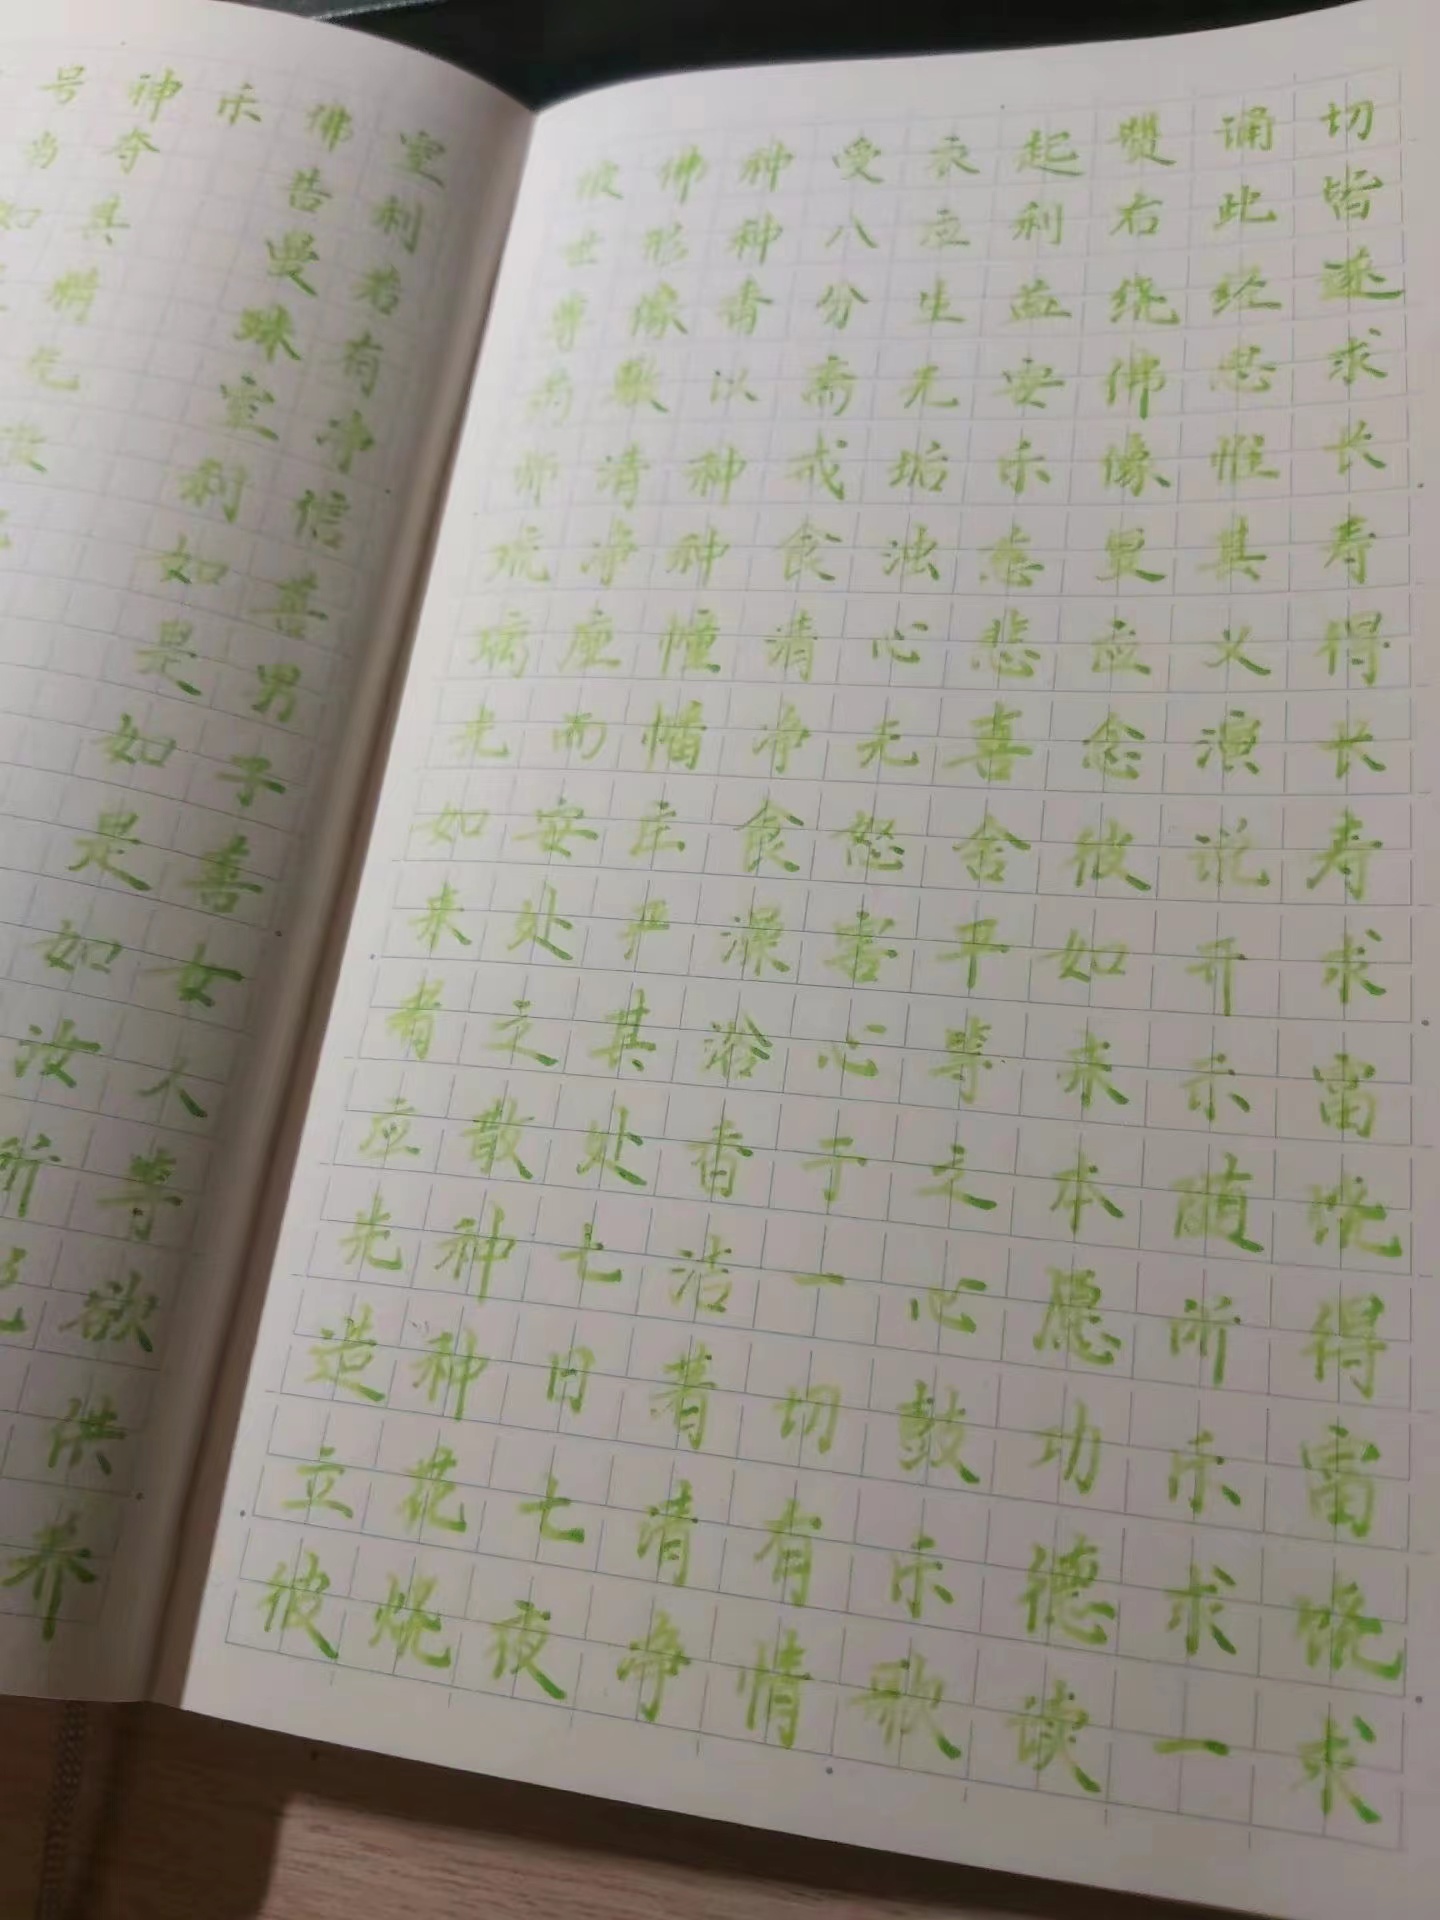 号当如
神夺其精气设
乐
佛告曼殊室利如是如是如汝所说
室利若有净信善男子善女人等欲供养
彼世尊药师琉璃光如来者应先造立彼
佛形像敷清净座而安处之散种种花烧
种种香以种种幢幡庄严其处七日七夜
受八分斋戒食清净食澡浴香洁着清净
衣应生无垢浊心无怒害心于一切有情
起利益安乐慈悲喜舍平等之心鼓乐歌
赞右绕佛像更应念彼如来本愿功德读
诵此经思惟其义演说开示随所乐求一
切皆遂求长寿得长寿求富饶得富饶求